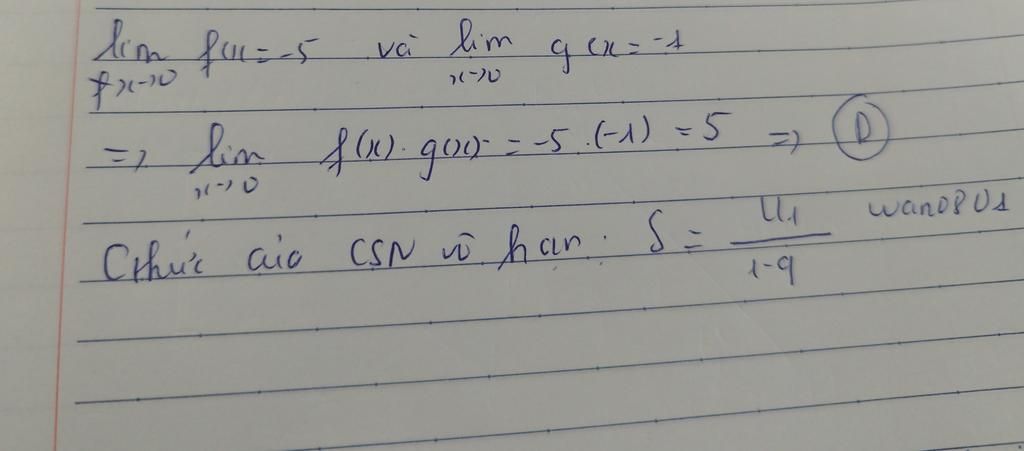 lim x→0 f(x = -5 và lim x→0 g(x = -1
=> lim x→0 f(x). g(x) = -5 .(-1) = 5 => D
Cthức của CSN vô hạn. S = U1 / 1-q wano8U1